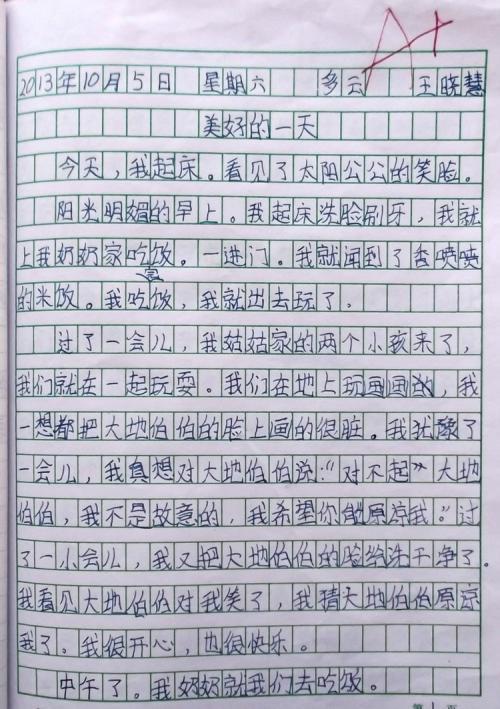 A+
2013年10月5日 星期六 多云 王晓慧
美好的一天
今天，我起床。看见了太阳公公的笑脸。
阳光明媚的早上。我起床洗脸刷牙，我就
上我奶奶家吃饭。一进门。我就闻到了香喷喷
的米饭。我吃完饭，我就出去玩了.
过了一会儿，我姑姑家的两个小孩来了，
我们就在一起玩耍。我们在地上玩画画的，我
一想都把大地伯伯的脸上画的很脏。我犹豫了
一会儿，我真想对大地伯伯说：“对不起”大地
伯伯，我不是故意的，我希望你能原谅我。”过
了一小会儿，我又把大地伯伯的脸给洗干净了。
我看见大地伯伯对我笑了，我猜大地伯伯原谅
我了。我很开心，也很快乐。
中午了。我奶奶就我们去吃饭。
第1页